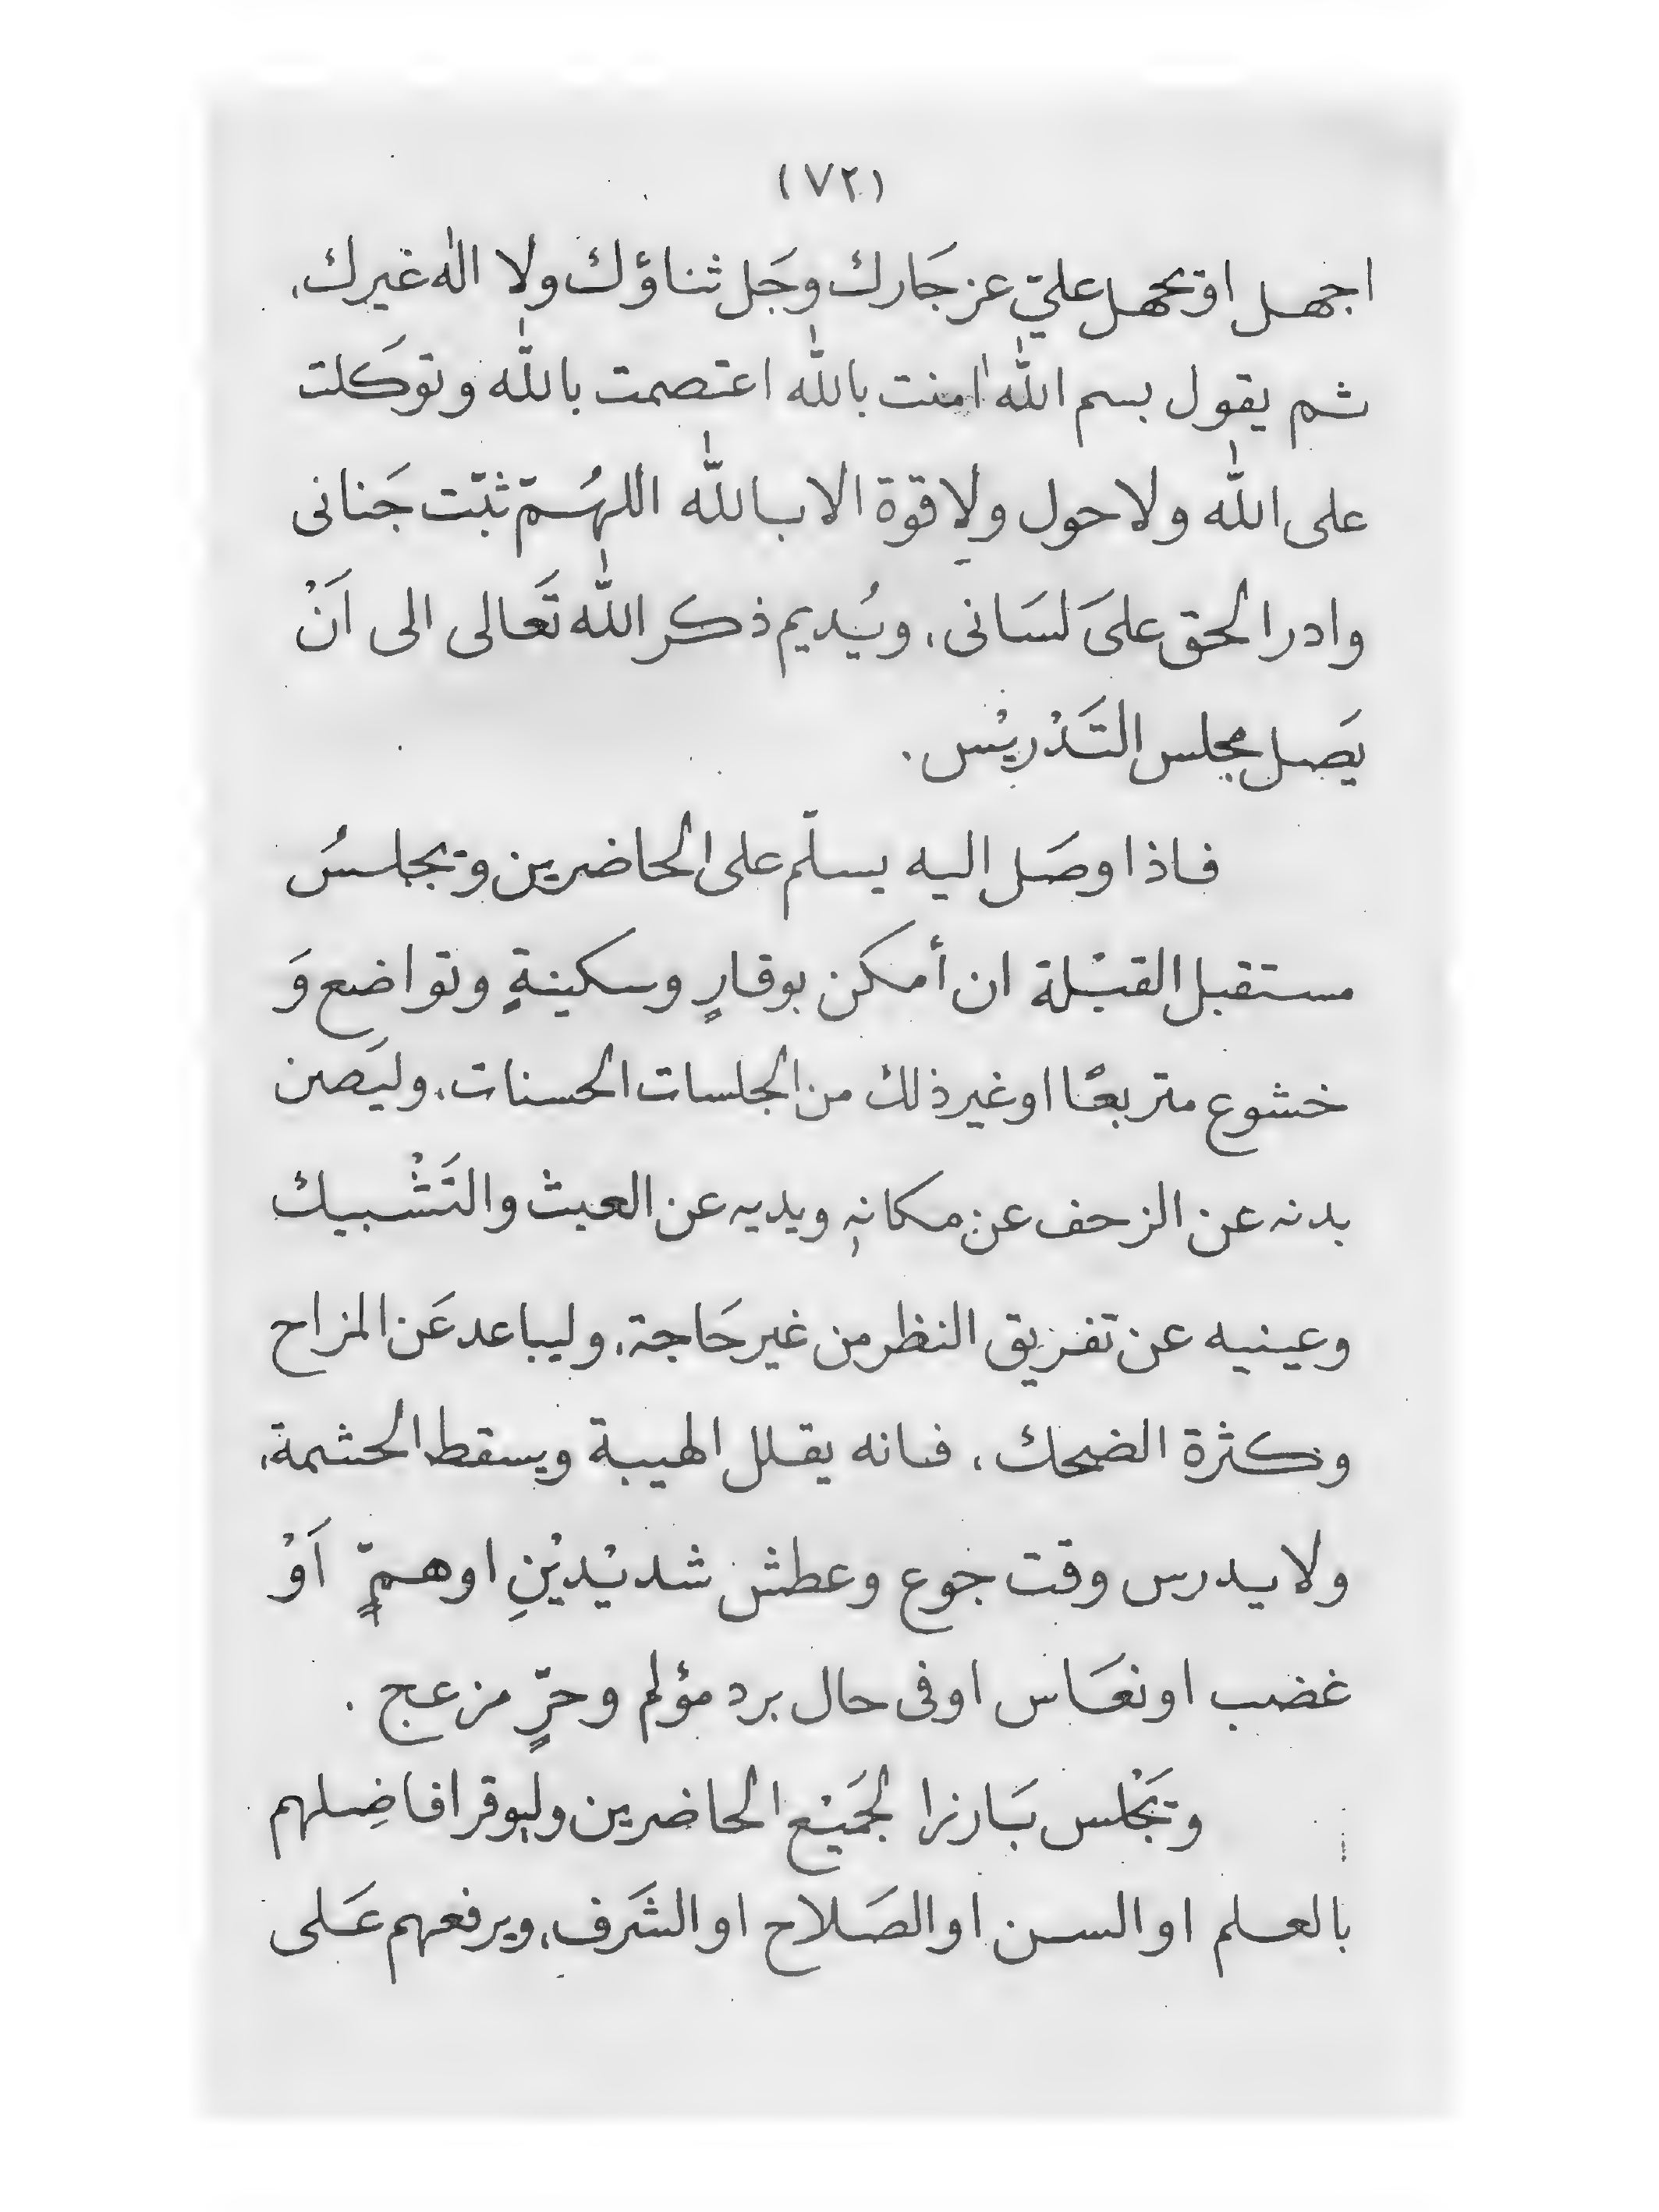 (٧٢)
اجهل او يجهل عليّ عز جَارك وجَل ثناؤك ولا اله غيرك،
ثم يقول بسم الله اٰمنت بالله اعتصمت بالله وتوكَلت
على الله ولا حول ولا قوة الا بالله اللهُمّ ثبّت جَنانى
وادر الحق علىَ لسَانى، ويُديم ذكر الله تَعالى الى اَنْ
يَصل مجلس التَدْريْس .
فاذا وصَل اليه يسلّم على الحاضرين ويجلسُ
مستقبل القبْلة ان أمكن بوقارٍ وسكينةٍ وتواضع وَ
خشوع متربعًا او غير ذلك من الجلسات الحسنات، وليَصن
بدنه عن الزحف عن مكانهٖ ويديه عن العبث والتَشْبيك
وعينيه عن تفريق النظر من غير حَاجة، وليباعد عَن المزاح
وكثرة الضحك، فانه يقلل الهيبة ويسقط الحشمة،
ولا يدرس وقت جوع وعطش شديْديْنِ او همٍّ اَوْ
غضب او نعَاس او فى حال برد مؤلم وحرٍّ مزعج .
ويَجْلس بَارزا لجمَيْع الحاضرين وليوقر افاضِلهم
بالعلم او السن او الصَلاح او الشَرف، ويرفعهم عَلى